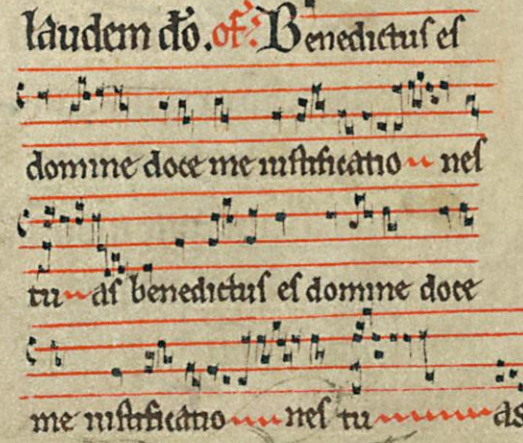 laudem dño. of. Benedictus es
domine doce me iustificatio nes
tu as benedictus es domine doce
me iustificatio nes tu as